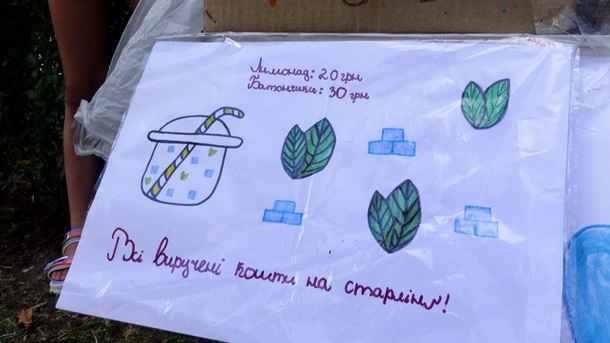 Лимонад: 20 грн
Батончики: 30 грн
Всі виручені кошти на старлінк!